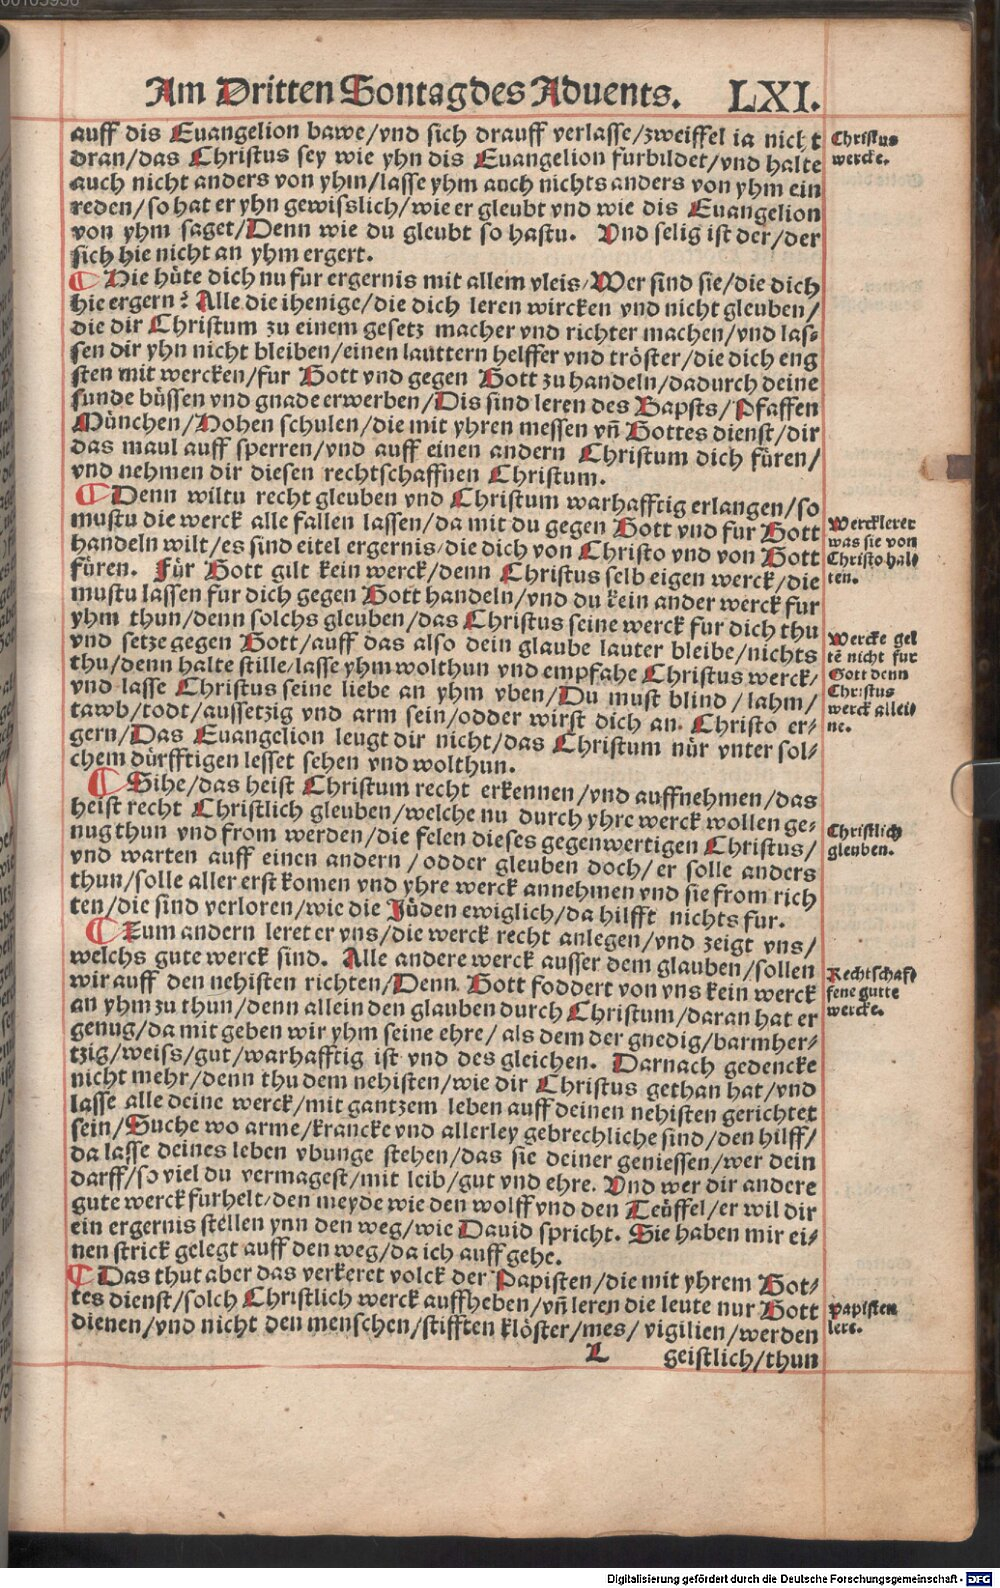 Am Dritten Sontag des Aduents. LXI.
auff dis Euangelion bawe/vnd sich drauff verlasse/zweiffel ia nicht
dran/das Christus sey wie yhn dis Euangelion furbildet/vnd halte
auch nicht anders von yhm/lasse yhm auch nichts anders von yhm ein
reden/so hat er yhn gewisslich/wie er gleubt vnd wie dis Euangelion
von yhm saget/Denn wie du gleubt so hastu. Vnd selig ist der/der
sich hie nicht an yhm ergert.
Christus
wercke.
¶ Hie hüte dich nu fur ergernis mit allem vleis/Wer sind sie/die dich
hie ergern? Alle die ihenige/die dich leren wircken vnd nicht gleuben/
die dir Christum zu einem gesetz macher vnd richter machen/vnd las-
sen dir yhn nicht bleiben/einen lauttern helffer vnd tröster/die dich eng
sten mit wercken/fur Gott vnd gegen Gott zu handeln/dadurch deine
sunde büssen vnd gnade erwerben/Dis sind leren des Bapsts/Pfaffen
München/Hohen schulen/die mit yhren messen vñ Gottes dienst/dir
das maul auff sperren/vnd auff einen andern Christum dich füren/
vnd nehmen dir diesen rechtschaffnen Christum.
¶ Denn wiltu recht gleuben vnd Christum warhafftig erlangen/so
mustu die werck alle fallen lassen/da mit du gegen Gott vnd fur Gott
handeln wilt/es sind eitel ergernis/die dich von Christo vnd von Gott
füren. Für Gott gilt kein werck/denn Christus selb eigen werck/die
mustu lassen fur dich gegen Gott handeln/vnd du kein ander werck fur
yhm thun/denn solchs gleuben/das Christus seine werck fur dich thu
vnd setze gegen Gott/auff das also dein glaube lauter bleibe/nichts
thu/denn halte stille/lasse yhm wolthun vnd empfahe Christus werck/
vnd lasse Christus seine liebe an yhm vben/Du must blind/lahm/
tawb/todt/aussetzig vnd arm sein/odder wirst dich an Christo er-
gern/Das Euangelion leugt dir nicht/das Christum nür vnter sol-
chem dürfftigen lesset sehen vnd wolthun.
Werckleret
was sie von
Christo hal-
ten.
Wercke gel
tē nicht fur
Gott denn
Christus
werck allei-
ne.
¶ Sihe/das heist Christum recht erkennen/vnd auffnehmen/das
heist recht Christlich gleuben/welche nu durch yhre werck wollen ge-
nug thun vnd from werden/die felen dieses gegenwertigen Christus/
vnd warten auff einen andern/odder gleuben doch/er solle anders
thun/solle aller erst komen vnd yhre werck annehmen vnd sie from rich
ten/die sind verloren/wie die Jüden ewiglich/da hilfft nichts fur.
Christlich
gleuben.
¶ Zum andern leret er vns/die werck recht anlegen/vnd zeigt vns/
welchs gute werck sind. Alle andere werck ausser dem glauben/sollen
wir auff den nehisten richten/Denn Gott foddert von vns kein werck
an yhm zu thun/denn allein den glauben durch Christum/daran hat er
genug/da mit geben wir yhm seine ehre/als dem der gnedig/barmher-
tzig/weiss/gut/warhafftig ist vnd des gleichen. Darnach gedencke
nicht mehr/denn thu dem nehisten/wie dir Christus gethan hat/vnd
lasse alle deine werck/mit gantzem leben auff deinen nehisten gerichtet
sein/Suche wo arme/krancke vnd allerley gebrechliche sind/den hilff/
da lasse deines leben vbunge stehen/das sie deiner geniessen/wer dein
darff/so viel du vermagest/mit leib/gut vnd ehre. Vnd wer dir andere
gute werck furhelt/den meyde wie den wolff vnd den Teüffel/er wil dir
ein ergernis stellen ynn den weg/wie Dauid spricht. Sie haben mir ei-
nen strick gelegt auff den weg/da ich auff gehe.
Rechtschaf-
fene gutte
wercke.
¶ Das thut aber das verkeret volck der Papisten/die mit yhrem Got-
tes dienst/solch Christlich werck auffheben/vñ leren die leute nur Gott
dienen/vnd nicht den menschen/stifften klöster/mes/vigilien/werden
Papisten
lere.
L geistlich/thun
Digitalisierung gefördert durch die Deutsche Forschungsgemeinschaft - DFG